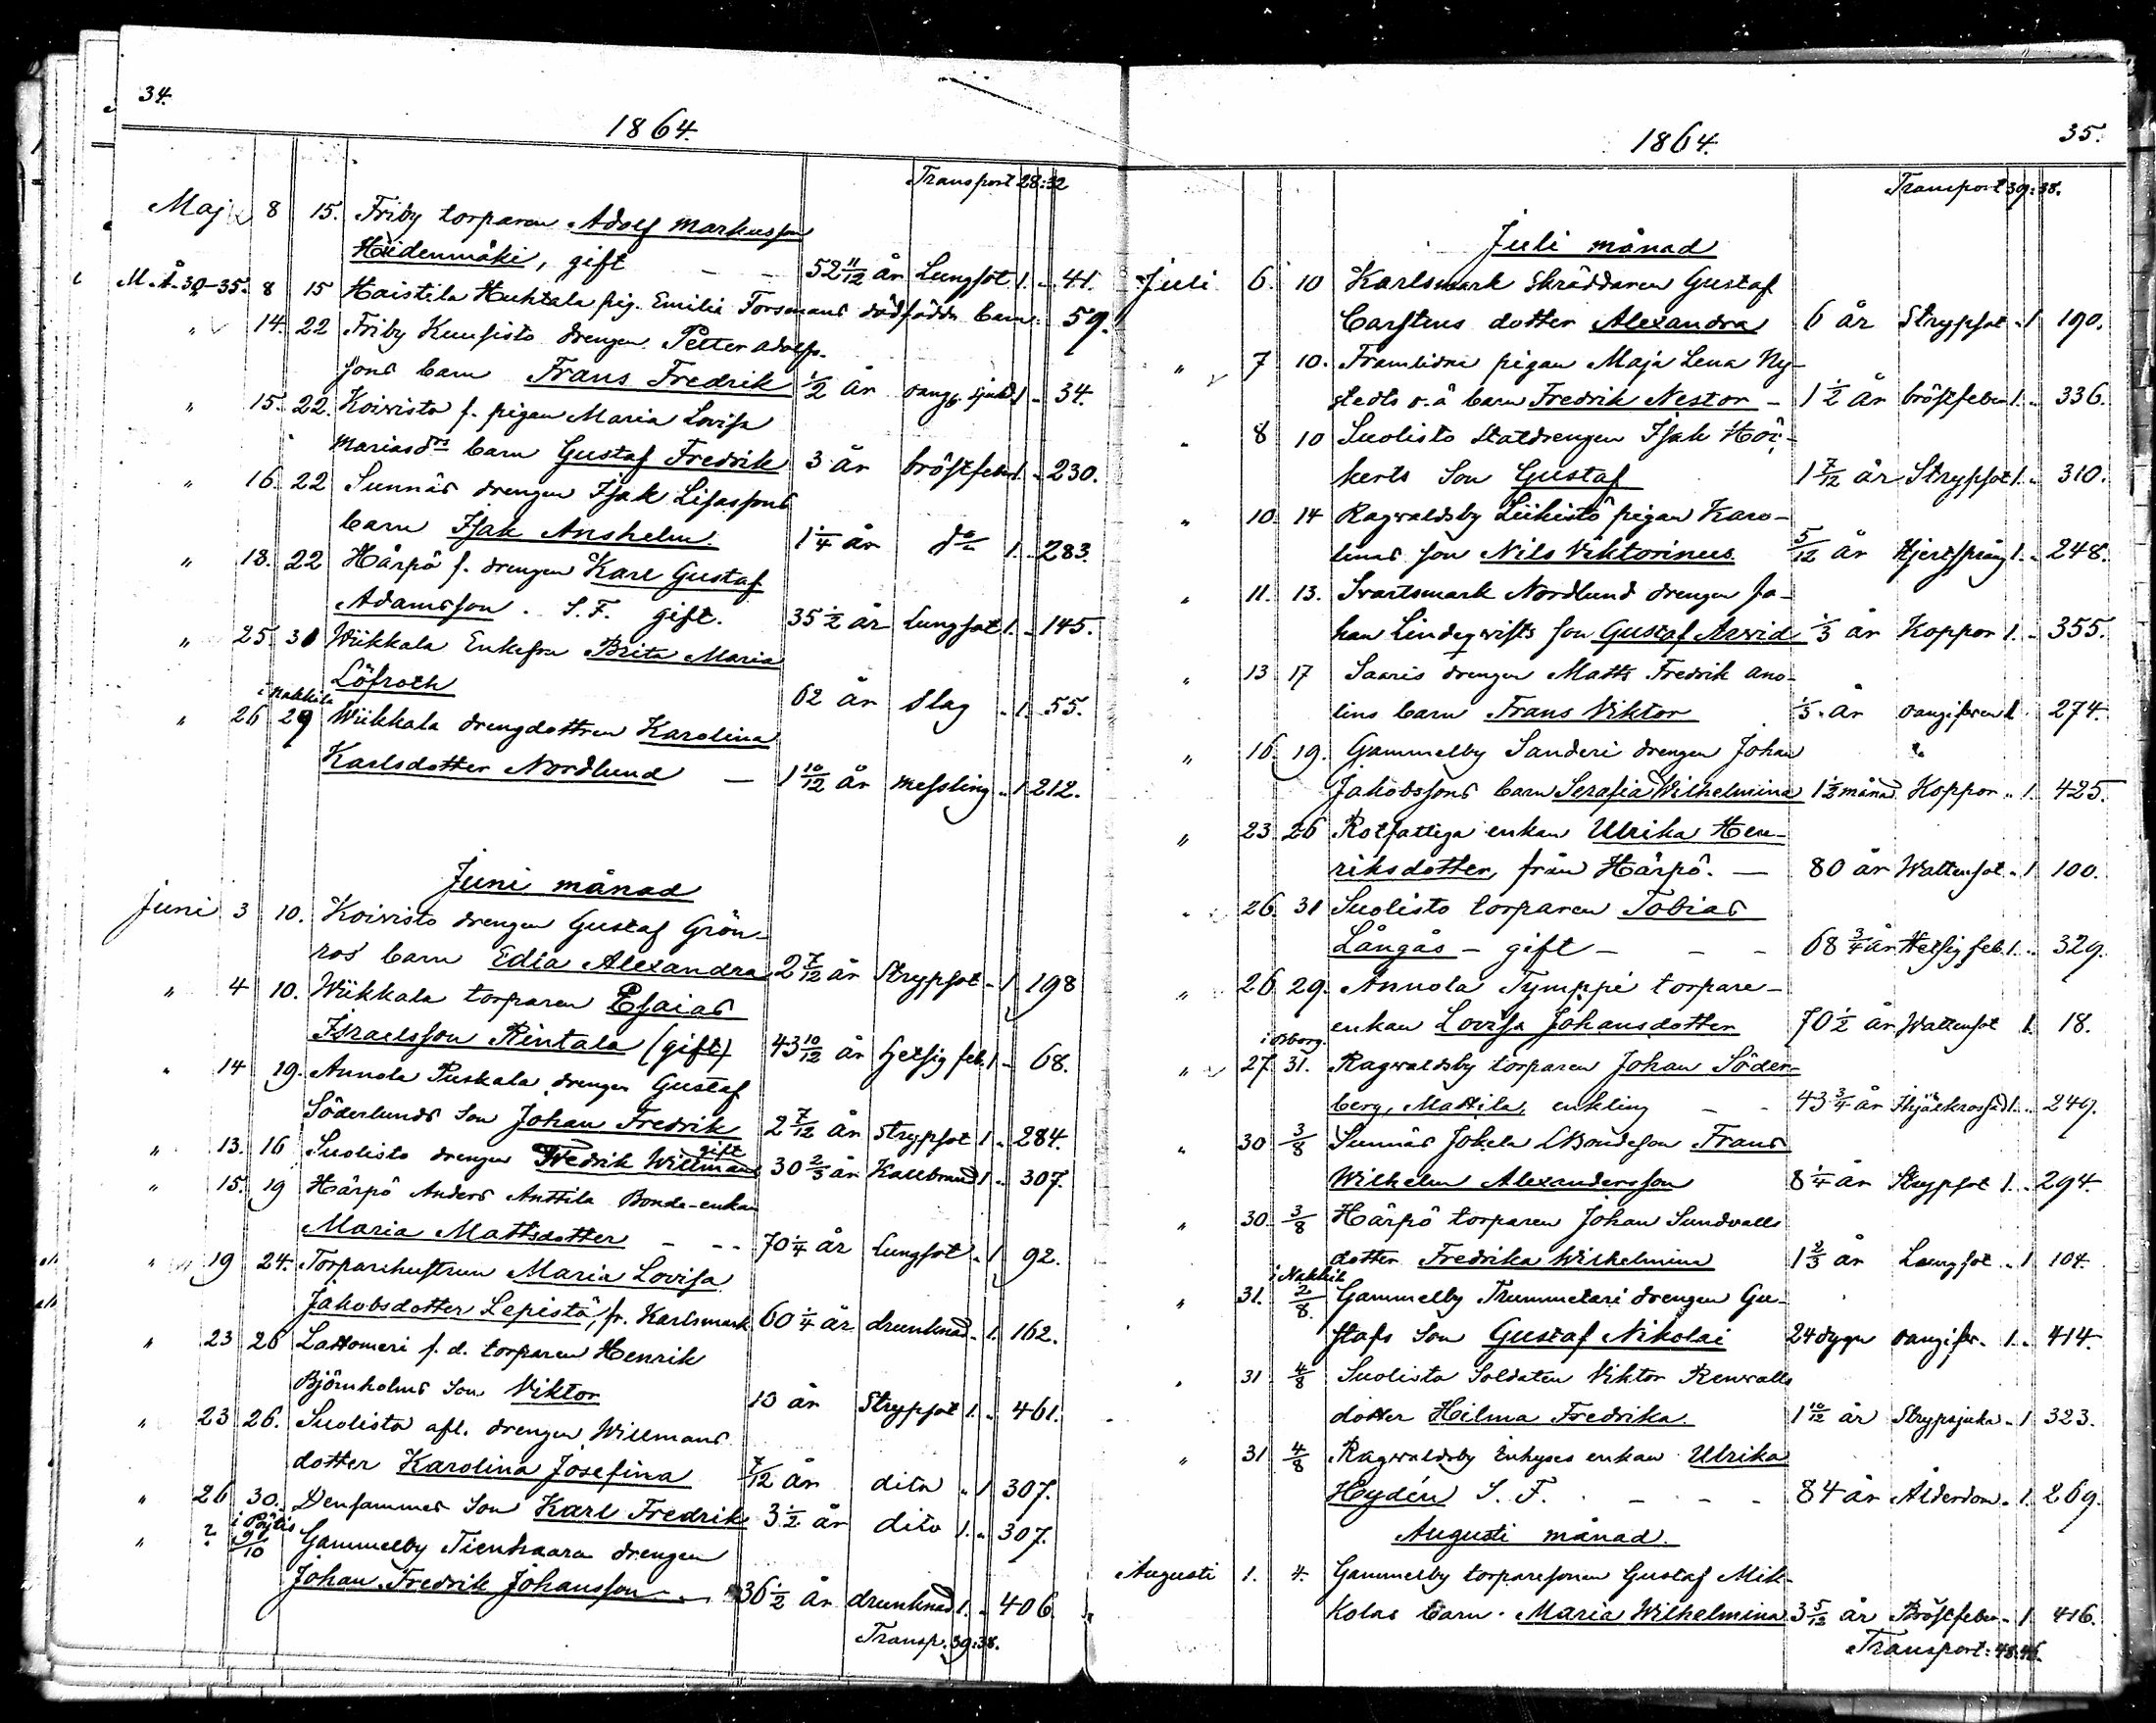 34.
1864.
Transport 28:32
Maj 8 15. Friby torparen Adolf Markusson
Hiidenmäki, gift - - 52 11/12 år Lungsot 1. " 41.
M. Å. 30-35. 8 15 Haistila Huhtala pig. Emilia Forsmans dödfödda barn. 59.
" 14. 22 Friby Kuusisto drengen Petter Adolfs-
sons barn Frans Fredrik 1/2 år oang. sjukd. 1 - 34.
" 15. 22. Koivisto f. pigan Maria Lovisa
Mariasdrs barn Gustaf Fredrik 3 år bröstfeber 1. " 230.
" 16. 22 Sunnäs drengen Isak Lisassons
barn Isak Anshelm. 1 1/4 år do 1. " 283.
" 18. 22 Hårpö f. drengen Karl Gustaf
Adamsson. S.F. gift. 35 1/2 år Lungsot 1. " 145.
" 25. 30 Wiikkala Enkefru Brita Maria
Löfroth 62 år slag " 1. 55.
i Nakkila
" 26 29 Wiikkala drengdottren Karolina
Karlsdotter Nordlund - 1 10/12 år messling " 1 212.
Juni månad
Juni 3 10. Koivisto drengen Gustaf Grön-
ros barn Edla Alexandra 2 7/12 år Strypsot " 1 198
" 4 10. Wiikkala torparen Esaias
Israelsson Rintala (gift) 43 10/12 år hetsig feb. 1 " 68.
" 14 19. Annola Puskala drengen Gustaf
Söderlunds son Johan Fredrik 2 7/12 år Strypsot 1 " 284.
gift
" 13. 16 Suolisto drengen Fredrik Willman 30 2/3 år Kallbrand 1 " 307.
" 15. 19 Hårpö Anders Anttila Bonde-enkan
Maria Mattsdotter - - - 70 1/4 år Lungsot " 1 92.
" 19 24. Torparehustrun Maria Lovisa
Jakobsdotter Lepistö, fr. Karlsmark 60 1/4 år drunknad " 1. 162.
" 23 26 Lattomeri f. d. torparen Henrik
Björnholms son Viktor 13 år Strypsot 1. " 461.
" 23 26. Suolisto afl. drengen Willmans
dotter Karolina Josefina 7/12 år dito " 1 307.
" 26 30. Densammes son Karl Fredrik 3 1/2 år dito 1. " 307.
i Pöytis
" ? 9/10 Gammelby Tienhaara drengen
Johan Fredrik Johansson - - 36 1/2 år drunknad 1. " 406
Transp. 39:38.
35.
1864.
Transport 39:38.
Juli månad
Juli 6. 10 Karlsmark Skräddaren Gustaf
Carstens dotter Alexandra 6 år Strypsot " 1 190.
" 7 10. Framlidne pigan Maja Lena Ny-
stedts o.ä barn Fredrik Nestor - 1 1/2 år bröstfeber 1. " 336.
" 8 10 Suolisto Statdrengen Isak Höc-
kerts son Gustaf 1 7/12 år Strypsot 1. " 310.
" 10. 14 Ragvaldsby Liikisto pigan Karo-
linas son Nils Viktorinus 5/12 år Hjertsprång 1. " 248.
" 11. 13. Svartsmark Nordlund drengen Jo-
han Lindqwists son Gustaf Arvid 1/3 år Koppor 1 - 355.
" 13 17 Saaris drengen Matts Fredrik Ano-
lins barn Frans Viktor 1/3 år oangifven 1 274.
" 16. 19. Gammelby Sanderi drengen Johan
Jakobssons barn Serafia Wilhelmina 1 1/2 månad Koppor " 1. 425.
" 23 26 Rotfattiga enkan Ulrika Hen-
riksdotter, från Hårpö. - 80 år Wattensot " 1 100.
" 26. 31 Suolisto torparen Tobias
Långås - gift - - - 68 3/4 år Hetsig feb. 1. " 329.
" 26 29. Annola Tymppi torpare-
enkan Lovisa Johansdotter 70 1/2 år Wattensot 1. 18.
i Hvborg.
" 27 31. Ragvaldsby torparen Johan Söder-
berg, Mattila, enkling - - 43 3/4 år ihjälkrossad 1. " 249.
" 30 3/8 Sunnäs Jokela Bondeson Frans
Wilhelm Alexandersson 8 1/4 år Strypsot 1. " 294.
" 30. 3/8 Hårpö torparen Johan Sundvalls
dotter Fredrika Wilhelmina 1 2/3 år Lungsot " 1 104.
i Nakkila
" 31. 2/8. Gammelby Trummetari drengen Gu-
stafs son Gustaf Nikolai 24 dygn oangifv. 1. " 414.
" 31 4/8 Suolisto Soldaten Viktor Renvalls
dotter Hilma Fredrika. 1 10/12 år Strypsjuka " 1 323.
" 31 4/8 Ragvaldsby Inhyses enkan Ulrika
Hydén S. F. - - - 84 år Ålderdom " 1. 269.
Augusti månad.
Augusti 1. 4. Gammelby torparesonen Gustaf Mik-
kolas barn. Maria Wilhelmina 3 5/12 år Bröstfeber " 1 416.
Transport: 48:46.